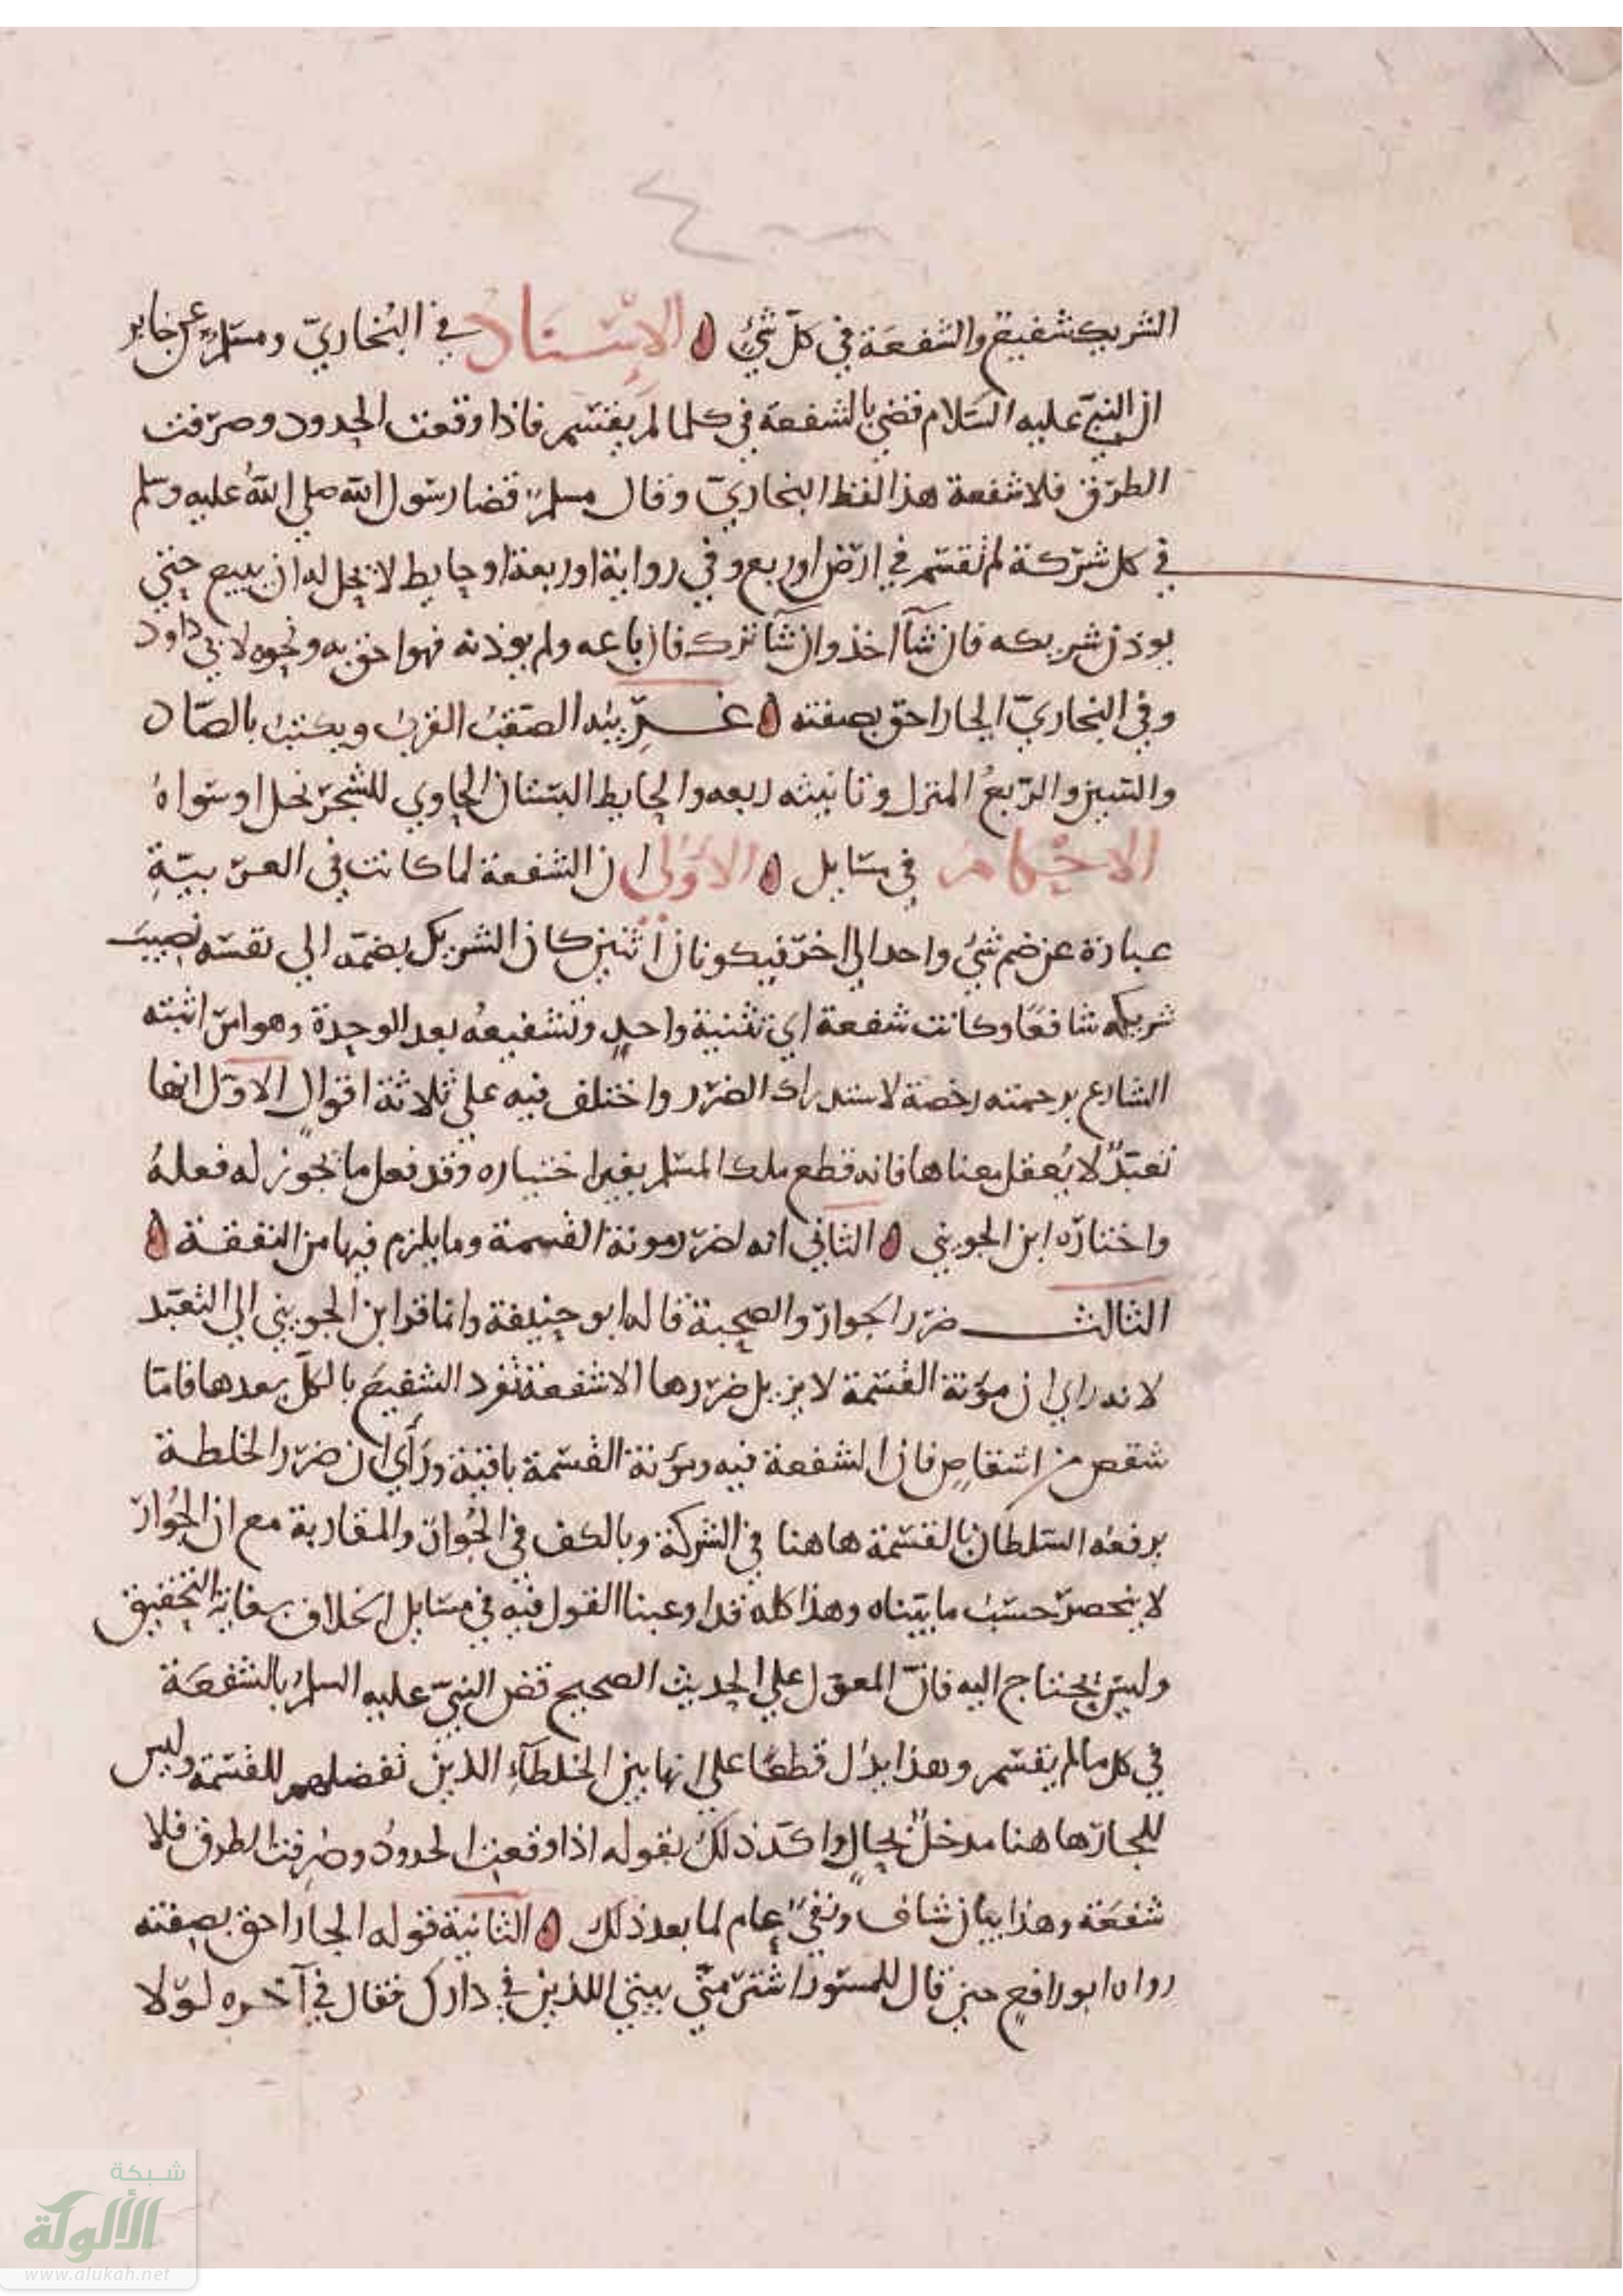 الشريك شفيع والشفعة في كل شيء ه الإسناد في البخاري ومسلم عن جابر
ان النبي عليه السلام قضى بالشفعة في كلما لم يقتسم فاذا وقعت الحدود وصرفت
الطرق فلا شفعة هذا لفظ البخاري وقال مسلم قضا رسول الله صلى الله عليه وسلم
في كل شركة لم تقسم في ارض او ربع وفي رواية او ربعة او حايط لا يحل له ان يبيع حتى
يوذن شريكه فان شآ اخذ وان شآ ترك فان باعه ولم يوذنه فهو احق به ونحوه لابي داود
وفي البخاري الجار احق بصقبه ه غريبه الصقب القرب ويكتب بالصاد
والسين والربع المنزل وتانيثه ربعه والحايط البستان الحاوي للشجر نخل او سواه
الاحكام في مسايل ه الاولى ان الشفعة لما كانت في العربية
عبارة عن ضم شيء واحد الى اخر فيكونان اثنين كان الشريك بضمه الى نفسه نصيب
شريكه شافعا وكانت شفعة اي تثنية واحد وتشفيعه بعد الوحدة وهو امر اثبته
الشارع برحمته رخصة لاستدراك الضرر واختلف فيه على ثلاثة اقوال الاول انها
تعبد لا يعقل معناها فانه قطع ملك المسلم بغير اختياره وقد فعل ما يجوز له فعله
واختاره ابن الجويني ه الثاني انه لضرر مونة القسمة وما يلزم فيها من النفقة ه
الثالث ضرر الجوار والصحبة قاله ابو حنيفة وانما فر ابن الجويني الى التعبد
لانه راى ان مؤنة القسمة لا يزيل ضررها الا شفعة تفرد الشفيع بالكل بعدها فاما
شقص من اشقاص فان الشفعة فيه ومؤنة القسمة باقية ورأى ان ضرر الخلطة
يرفعه السلطان بالقسمة هاهنا في الشركة وبالكف في الجوار والمقاربة مع ان الجوار
لا ينحصر حسب ما بيناه وهذا كله قد اوعبنا القول فيه في مسايل الخلاف بغاية التحقيق
وليس يحتاج اليه فان المعول على الحديث الصحيح قضى النبي عليه السلم بالشفعة
في كل ما لم يقسم وهذا يدل قطعا على انها بين الخلطآء الذين تفضلهم للقسمة وليس
للجار هاهنا مدخل بحال واكد ذلك بقوله اذا وقعت الحدود وصرفت الطرق فلا
شفعة وهذا بيان شاف ونفي عام لما بعد ذلك ه الثانية قوله الجار احق بصقبه
رواه ابو رافع حين قال للمسور اشتر مني بيتي اللذين في دارك فقال في آخره لولا
شبكة
الألوكة
www.alukah.net